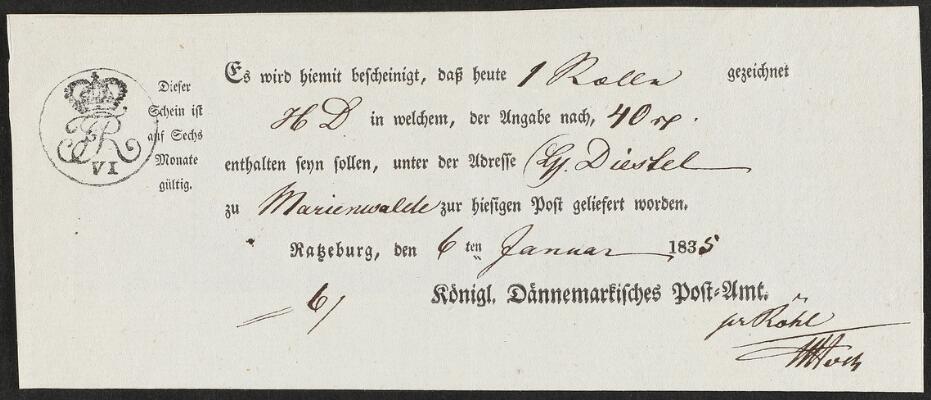 FR
VI
Dieser
Schein ist
auf Sechs
Monate
gültig.
Es wird hiemit bescheinigt, daß heute 1 Rolle gezeichnet
H D in welchem, der Angabe nach, 40 rp.
enthalten seyn sollen, unter der Adresse Diestel
zu Marienwalde zur hiesigen Post geliefert worden.
Ratzeburg, den 6 ten Januar 1835
6/
Königl. Dännemarkisches Post-Amt.
pr Röhl